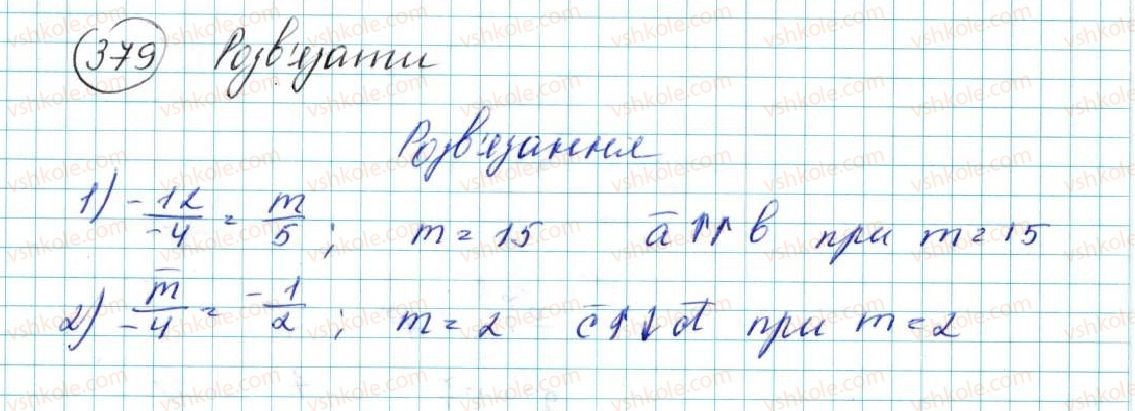 379 Розв'язати
Розв'язання
1) -12/-4 = m/5; m = 15 a̅ ↑↑ b при m = 15
2) m̅/-4 = -1/2; m = 2 c̅ ↑↓ d̅ при m = 2